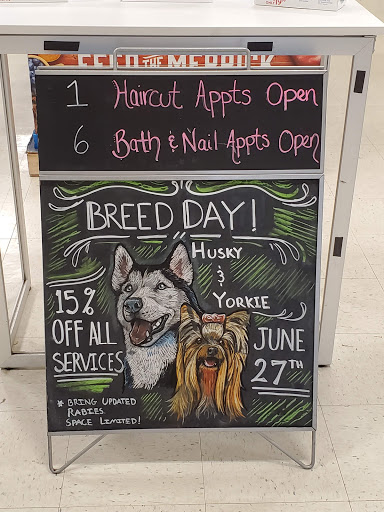 FEED THE MERRICK
1 Haircut Appts Open
6 Bath & Nail Appts Open
BREED DAY!
HUSKY
&
YORKIE
15%
OFF ALL
SERVICES
JUNE
27TH
* BRING UPDATED
RABIES.
SPACE LIMITED!